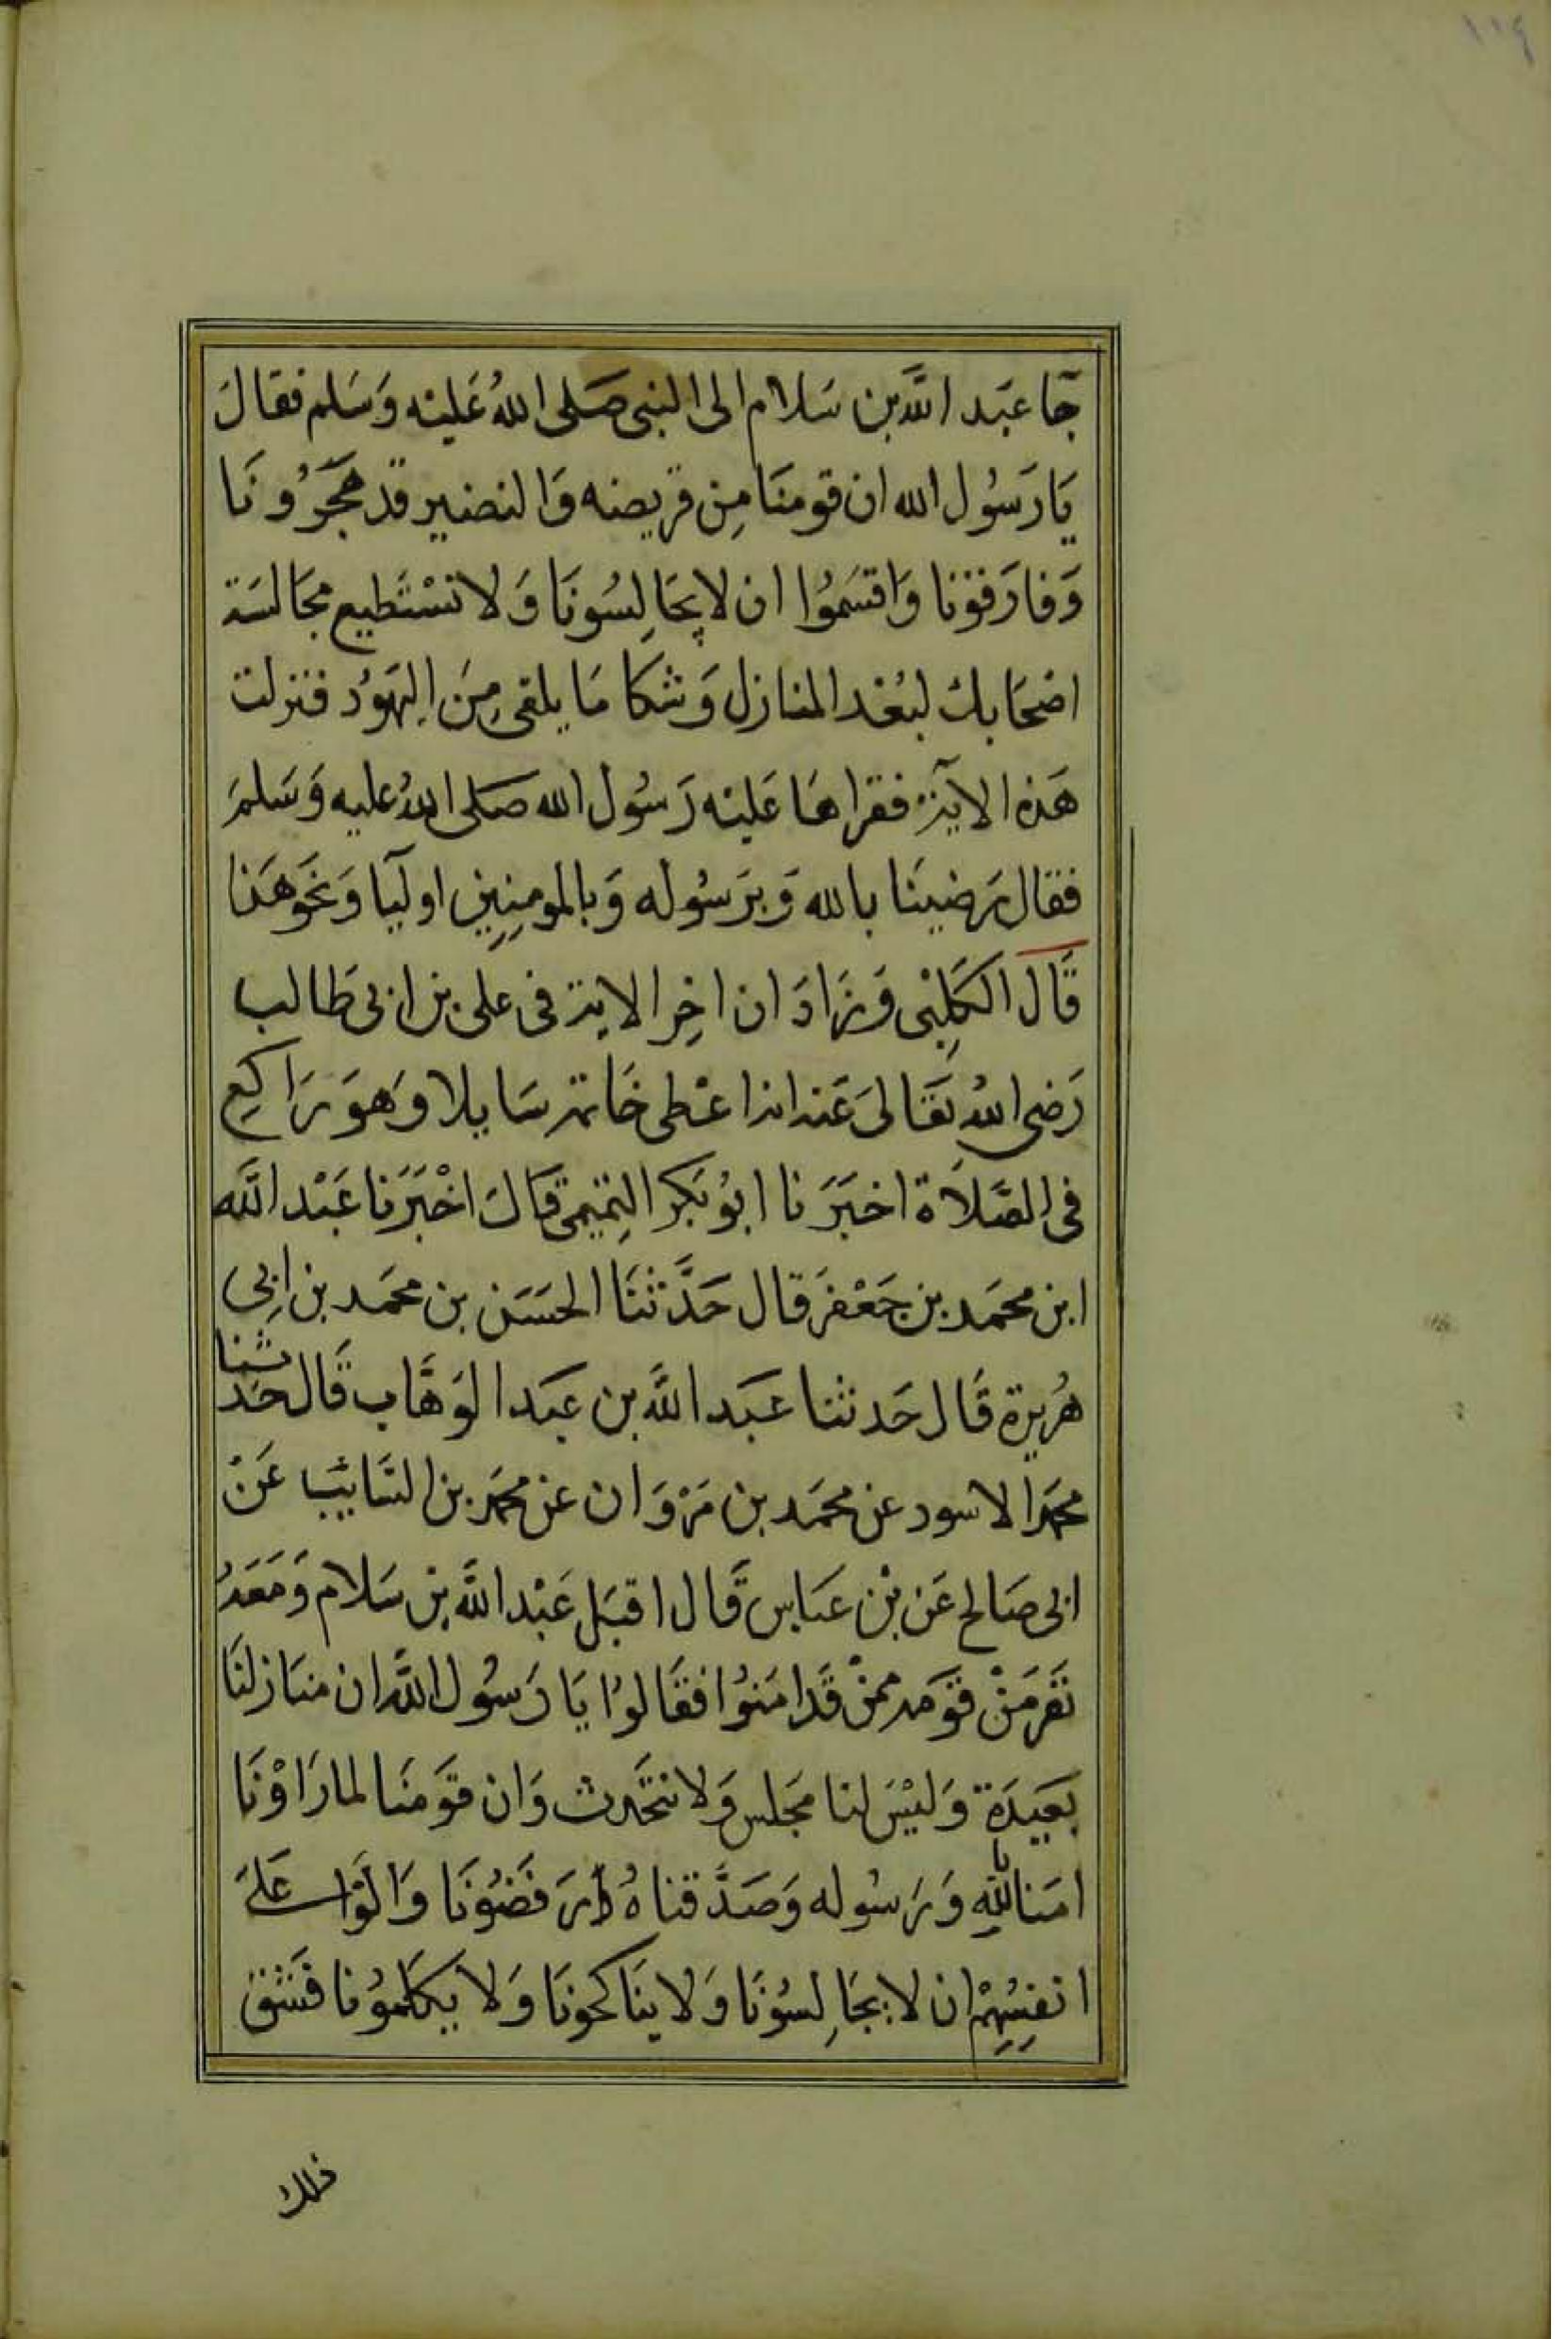 ١٠٤
جآ عبَد اللَّه بن سَلام الى النبى صَلى اللهُ عَليْه وَسَلم فقالَ
يَا رَسُول الله ان قومنَا مِن قريضه وَالنضير قد هَجَرُونَا
وَفارَقونا وَاقتسَموُا ان لا يجَالِسُونَا وَلا نسْتَطيع مجَالسَة
اصْحَابك لبُعْد المنازل وَشكا مَا يلقى مِنَ اليهَوُد فنزلت
هَذه الآية فقراهَا عَليْه رَسُول الله صَلى اللهُ عليه وَسَلمَ
فقال رَضينَا بالله وَبرَسُوله وَبالمومِنِين اوليآ وَنحَو هَذا
قَال الكَلِبْى وَزَادَ ان اخِر الاية فى على بن ابى طَالب
رَضى اللهُ تَعَالىَ عَنه انه اعْطى خَاتمه سَايلا وَهوَ رَاكِع
فى الصَّلاَة اخبَرَنا ابوُ بَكر التِميمى قَالَ اخْبَرَنا عَبْد اللَّه
ابن محمَد بن جَعْفرَ قال حَدَّثنَا الحسَن بن محمَد بن ابِى
هُريرة قَال حَدثنا عَبَد اللَّه بن عبَد الوَهَّاب قَال حَدثنا
محمَد الاسود عن محمَد بن مَرْوَان عن محمَد بن السَّايَب عَنْ
ابى صَالح عَن بْن عبَاس قَال اقبَل عَبْد اللَّه بن سَلام وَمَعَهُ
نَفَر مَنْ قوَمه ممنْ قَد امَنوُا فقَالوُا يَا رَسُول اللَّه ان منَازلنَا
بَعيَدَة وَليْسَ لنا مجَلس وَلا نتحَدث وَان قوَمنَا لما رَاوْنَا
امَنا بالله وَرَسُوله وَصَدَّقناهُ رَفَضوُنَا وَالَوْا عَلىَ
انفسِهِمْ ان لا يجَالِسُونَا وَلا ينَاكحونَا وَلا يكَلموُنا فشَق
ذلك